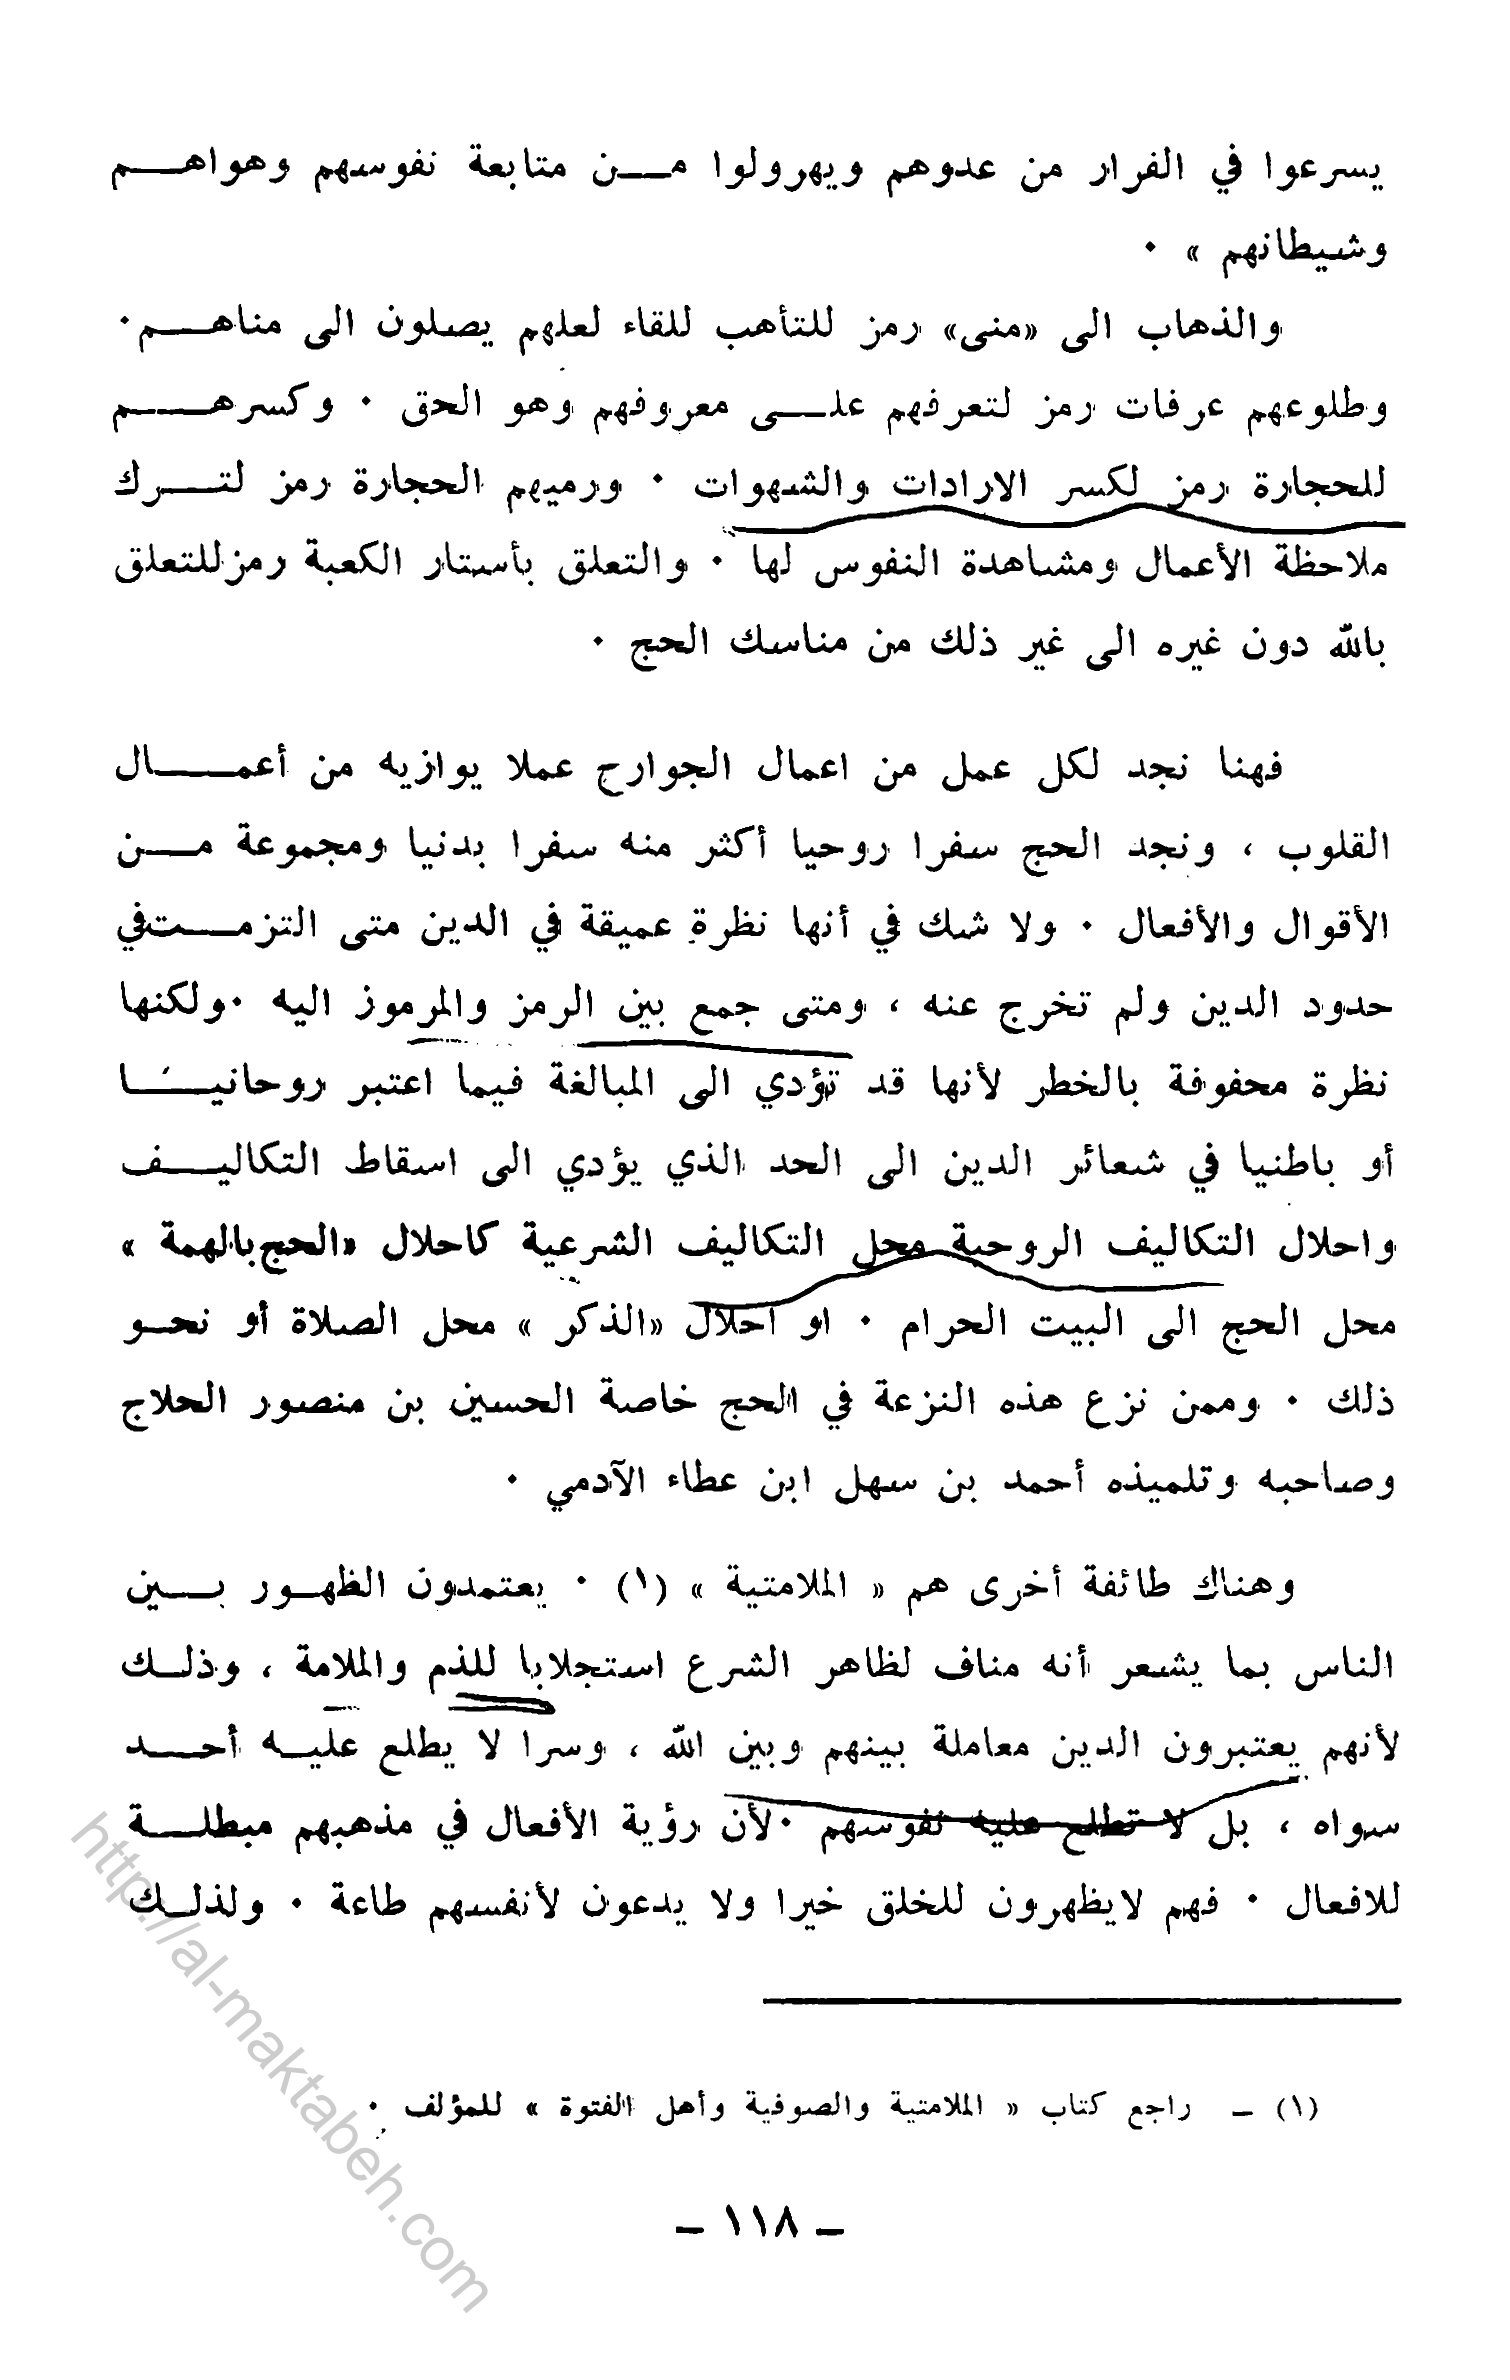 يسرعوا في الفرار من عدوهم ويهرولوا مـــن متابعة نفوسهم وهواهـــم
وشيطانهم » ٠
والذهاب الى «منى» رمز للتأهب للقاء لعلهم يصلون الى مناهـــم٠
وطلوعهم عرفات رمز لتعرفهم علـــى معروفهم وهو الحق ٠ وكسرهـــم
للحجارة رمز لكسر الارادات والشهوات ٠ ورميهم الحجارة رمز لتـــرك
ملاحظة الأعمال ومشاهدة النفوس لها ٠ والتعلق بأستار الكعبة رمزللتعلق
بالله دون غيره الى غير ذلك من مناسك الحج ٠
فهنا نجد لكل عمل من اعمال الجوارح عملا يوازيه من أعمـــال
القلوب ، ونجد الحج سفرا روحيا أكثر منه سفرا بدنيا ومجموعة مـــن
الأقوال والأفعال ٠ ولا شك في أنها نظرة عميقة في الدين متى التزمـــت في
حدود الدين ولم تخرج عنه ، ومتى جمع بين الرمز والمرموز اليه ٠ولكنها
نظرة محفوفة بالخطر لأنها قد تؤدي الى المبالغة فيما اعتبر روحانيـــا
أو باطنيا في شعائر الدين الى الحد الذي يؤدي الى اسقاط التكاليـــف
واحلال التكاليف الروحية محل التكاليف الشرعية كاحلال «الحج بالهمة »
محل الحج الى البيت الحرام ٠ او احلال «الذكر » محل الصلاة أو نحـو
ذلك ٠ وممن نزع هذه النزعة في الحج خاصة الحسين بن منصور الحلاج
وصاحبه وتلميذه أحمد بن سهل ابن عطاء الآدمي ٠
وهناك طائفة أخرى هم « الملامتية » (١) ٠ يعتمدون الظهـور بـــين
الناس بما يشعر أنه مناف لظاهر الشرع استجلابا للذم والملامة ، وذلـك
لأنهم يعتبرون الدين معاملة بينهم وبين الله ، وسرا لا يطلع عليـه أحـــد
سواه ، بل لا تطلع عليه نفوسهم ٠لأن رؤية الأفعال في مذهبهم مبطلـــة
للافعال ٠ فهم لايظهرون للخلق خيرا ولا يدعون لأنفسهم طاعة ٠ ولذلـك
(١) ــ راجع كتاب « الملامتية والصوفية وأهل الفتوة » للمؤلف ٠
ــ ١١٨ ــ
http://al-maktabeh.com